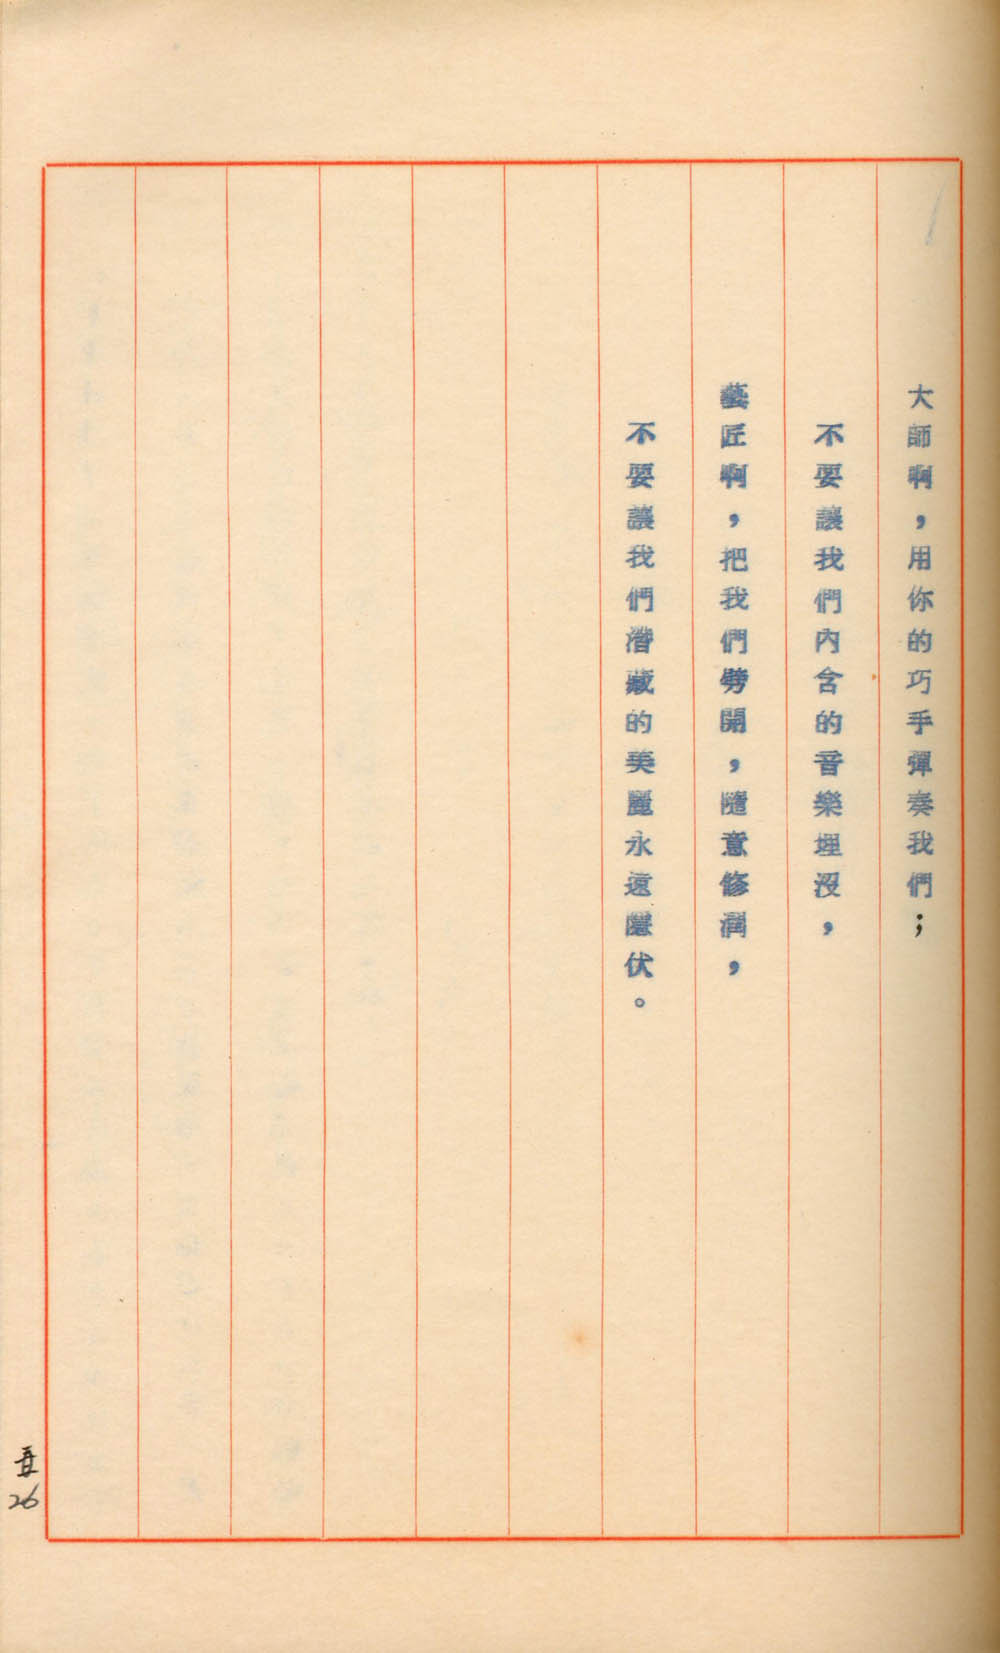 大師啊，用你的巧手彈奏我們；
不要讓我們內含的音樂埋沒，
藝匠啊，把我們劈開，隨意修潤，
不要讓我們潛藏的美麗永遠隱伏。
26